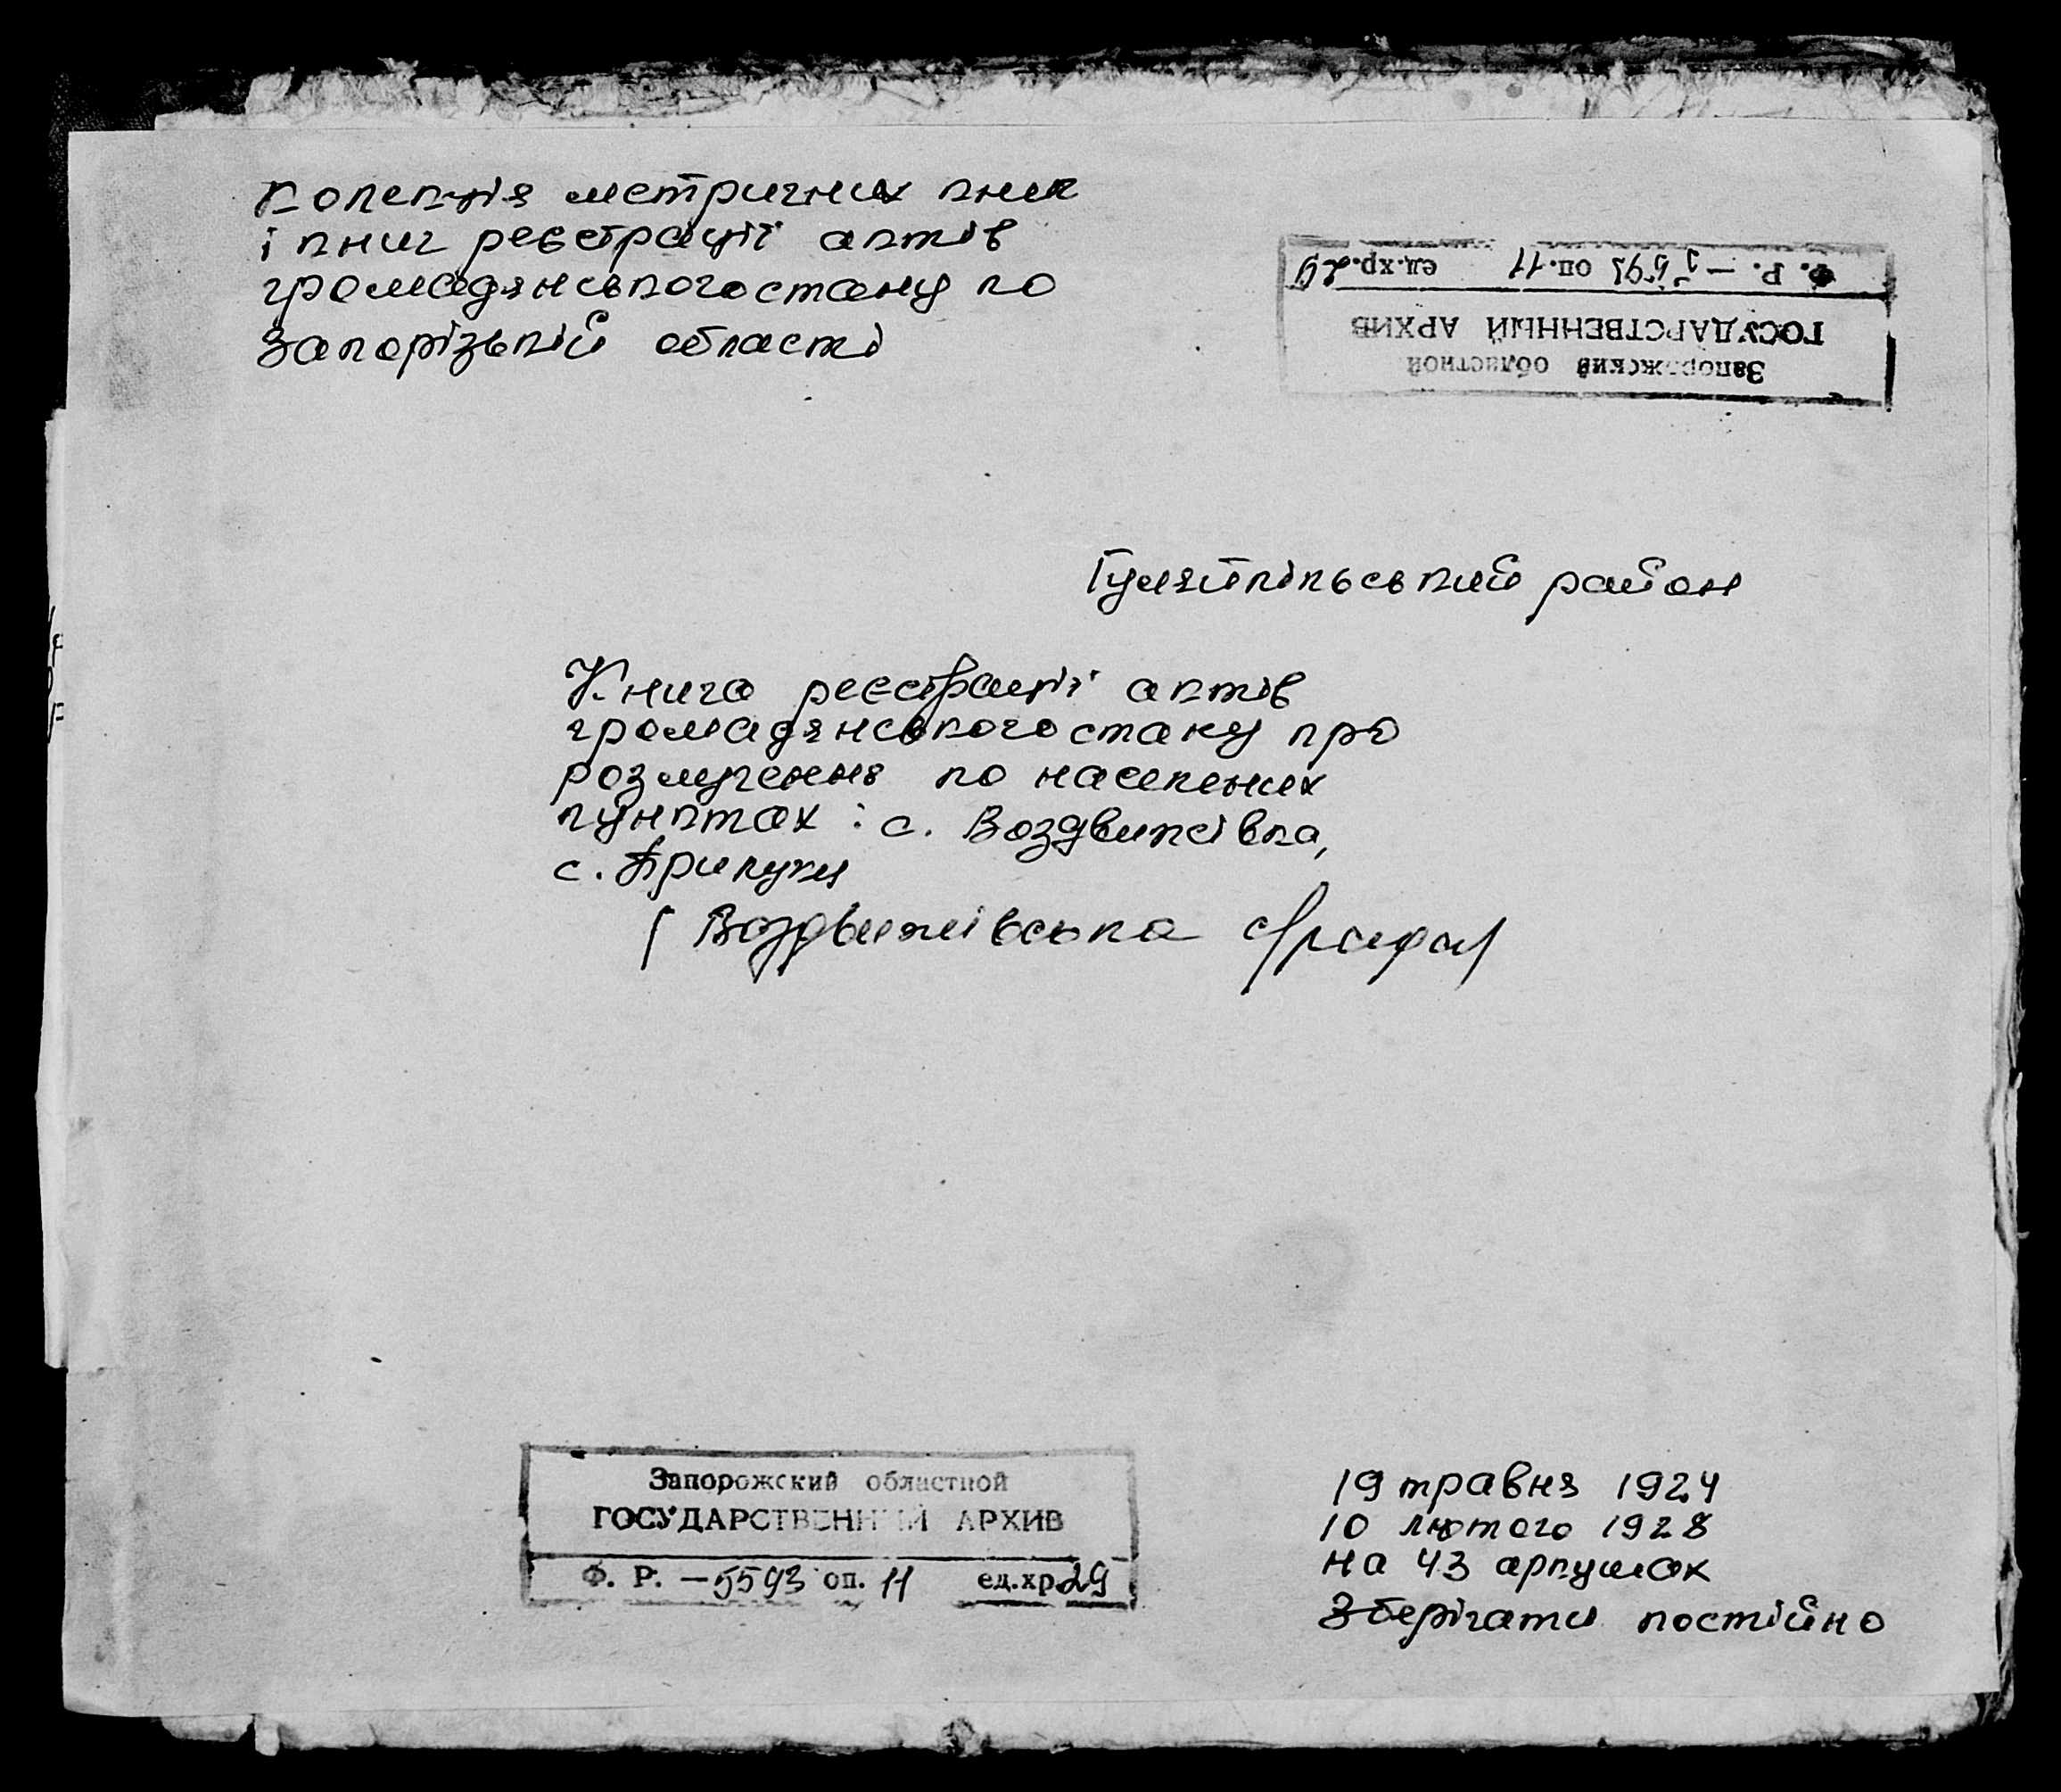 Колекція метричних книг
і книг реєстрації актів
громадянського стану по
Запорізькій області
Запорожский областной
ГОСУДАРСТВЕННЫЙ АРХИВ
Ф. Р. – 5593 оп. 11 ед.хр. 29
Гуляйпільський район
Книга реєстрації актів
громадянського стану про
розлучення по населених
пунктах: с. Воздвижівка,
с. Прилуки
/ Воздвижівська с/рада/
Запорожский областной
ГОСУДАРСТВЕННЫЙ АРХИВ
Ф. Р. – 5593 оп. 11 ед.хр. 29
19 травня 1924
10 лютого 1928
на 43 аркушах
Зберігати постійно